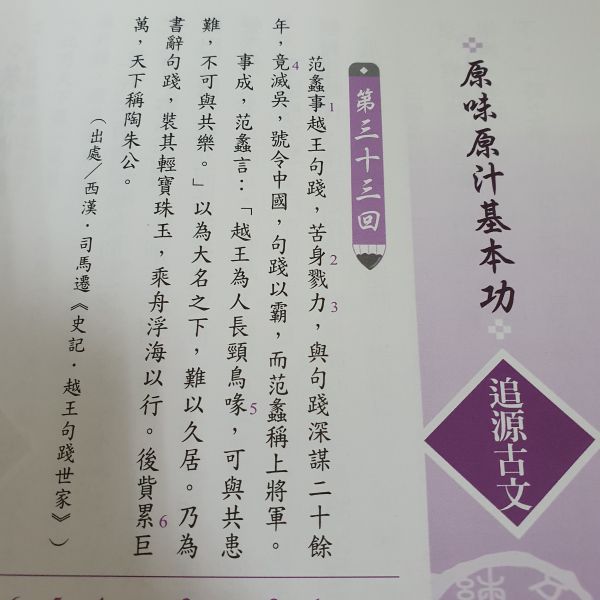 原味原汁基本功
追源古文
第三十三回
范蠡事1越王句踐，苦身2戮力3，與句踐深謀二十餘
年，竟4滅吳，號令中國，句踐以霸，而范蠡稱上將軍。
事成，范蠡言：「越王為人長頸鳥喙5，可與共患
難，不可與共樂。」以為大名之下，難以久居。乃為
書辭句踐，裝其輕寶珠玉，乘舟浮海以行。後貲累6巨
萬，天下稱陶朱公。
（出處／西漢．司馬遷《史記．越王句踐世家》）